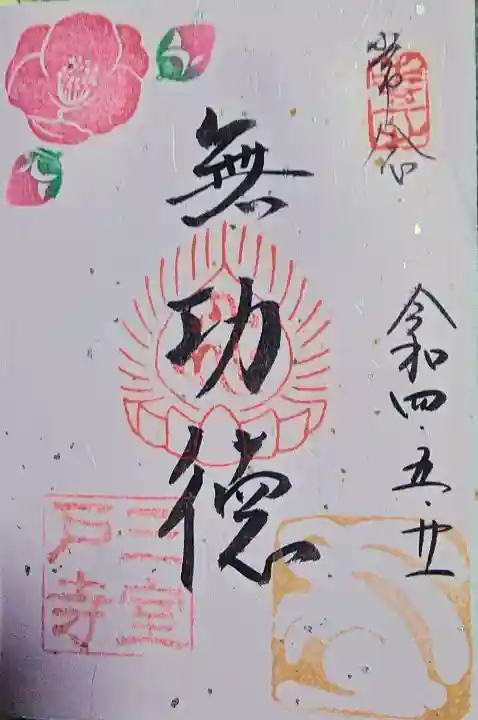 令和四・五・廿一
無功徳
三室
戸寺